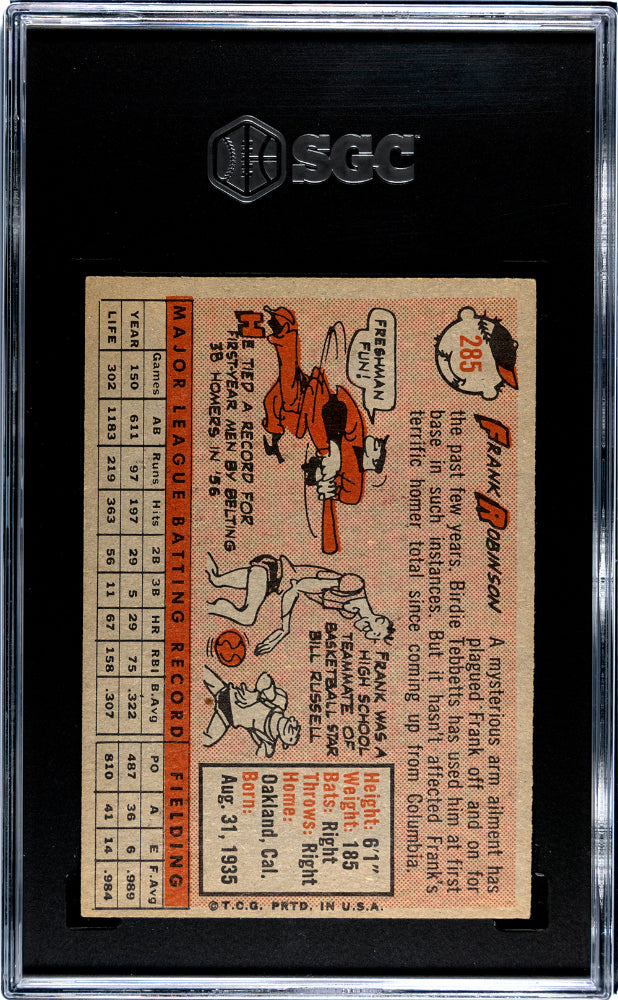 SGC
285
FRANK ROBINSON
A mysterious arm ailment has
plagued Frank off and on for
the past few years. Birdie Tebbetts has used him at first
base in such instances. But it hasn't affected Frank's
terrific homer total since coming up from Columbia.
FRESHMAN
FUN!
HE TIED A RECORD FOR
FIRST-YEAR MEN BY BELTING
38 HOMERS IN '56
FRANK WAS A
HIGH SCHOOL
TEAMMATE OF
BASKETBALL STAR
BILL RUSSELL
Height: 6'1"
Weight: 185
Bats: Right
Throws: Right
Home:
Oakland, Cal.
Born:
Aug. 31, 1935
MAJOR LEAGUE BATTING RECORD FIELDING
Games AB Runs Hits 2B 3B HR RBI B.Avg PO A E F.Avg
YEAR 150 611 97 197 29 5 29 75 .322 487 36 6 .989
LIFE 302 1183 219 363 56 11 67 158 .307 810 41 14 .984
©T.C.G. PRTD. IN U.S.A.